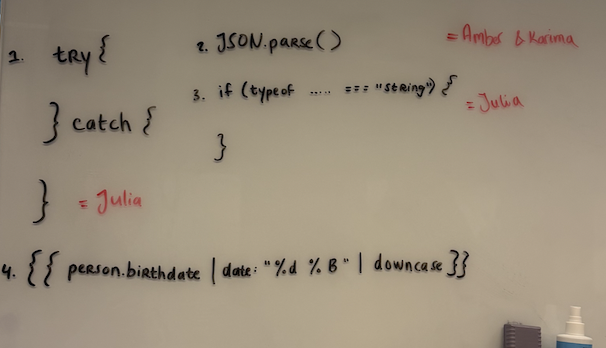 1. try {
} catch {
} = Julia
2. JSON.parse() = Amber & Karima
3. if (typeof ..... === "string") {
} = Julia
4. {{ person.birthdate | date: "%d %B" | downcase }}